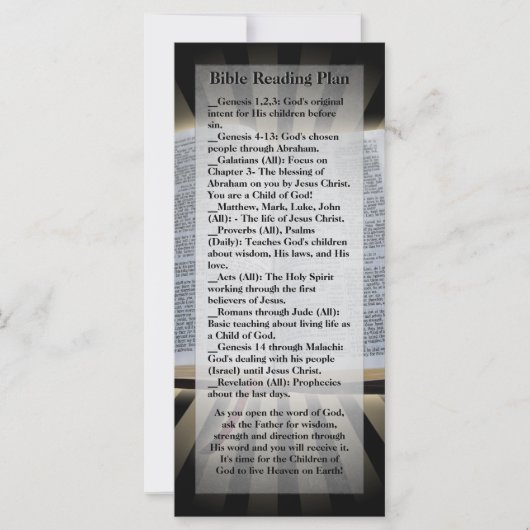 Bible Reading Plan
__Genesis 1,2,3: God's original
intent for His children before
sin.
__Genesis 4-13: God's chosen
people through Abraham.
__Galatians (All): Focus on
Chapter 3- The blessing of
Abraham on you by Jesus Christ.
You are a Child of God!
__Matthew, Mark, Luke, John
(All): - The life of Jesus Christ.
__Proverbs (All), Psalms
(Daily): Teaches God's children
about wisdom, His laws, and His
love.
__Acts (All): The Holy Spirit
working through the first
believers of Jesus.
__Romans through Jude (All):
Basic teaching about living life as
a Child of God.
__Genesis 14 through Malachi:
God's dealing with his people
(Israel) until Jesus Christ.
__Revelation (All): Prophecies
about the last days.
As you open the word of God,
ask the Father for wisdom,
strength and direction through
His word and you will receive it.
It's time for the Children of
God to live Heaven on Earth!